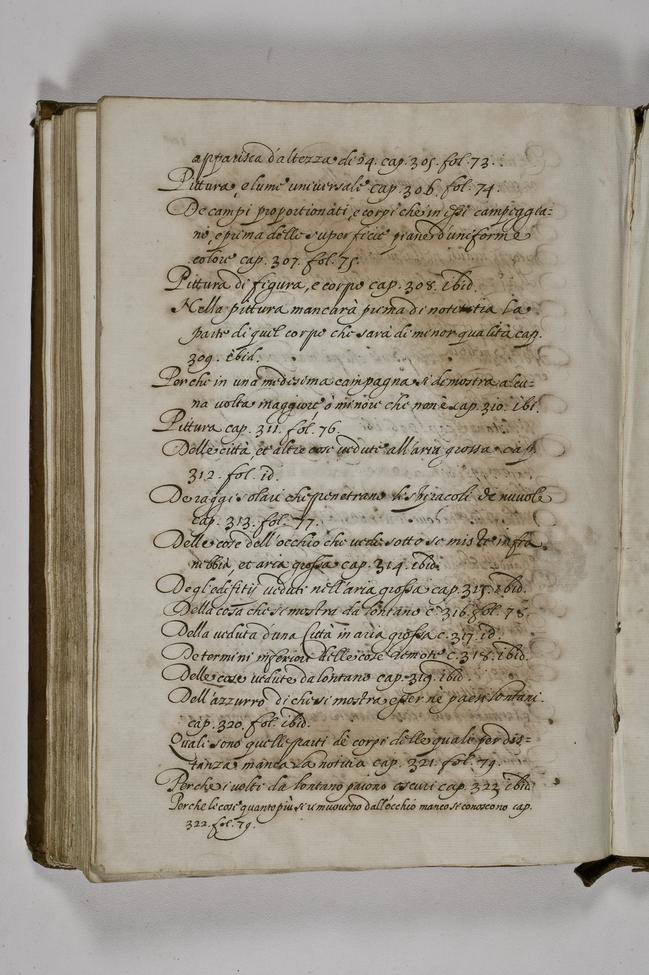 apparisca d'altezza di 24. cap. 305. fol. 73.
Pittura, e lume universale cap. 306. fol. 74.
De campi proportionati, e corpi che in essi campeggia=
no, e prima delle superficie piane d'uniforme
colore cap. 307. fol. 75.
Pittura di figura, e corpo cap. 308. ibid.
Nella pittura mancarà prima di notitia la
parte di quel corpo che sarà di minor qualità cap.
309. ibid.
Perche in una medesima campagna si dimostra alcu=
na volta maggiore ò minore che non è cap. 310. ibi.
Pittura cap. 311. fol. 76.
Delle città, et altre cose vedute all'aria grossa cap.
312. fol. id.
De raggi solari che penetrano li spiracoli de nuvole
cap. 313. fol. 77.
Delle cose dell'occhio che vede sotto se miste infra
nebbia, et aria grossa cap. 314. ibid.
Degl'edifitij veduti nell'aria grossa cap. 315. ibid.
Della cosa che si mostra da lontano c. 316. fol. 78.
Della veduta d'una Città in aria grossa c. 317. id.
De termini inferiori delle cose remote c. 318. ibid.
Delle cose vedute da lontano cap. 319. ibid.
Dell'azzurro di che si mostra esser ne paesi lontani.
cap. 320. fol. ibid.
Quali sono quelle parti de corpi delle quale per dis=
tanza manca la notitia cap. 321. fol. 79.
Perche i volti da lontano paiono oscuri cap. 323. ibid.
Perche le cose quanto più si rimuoveno dall'occhio manco si conoscono cap.
322. fol. 79.